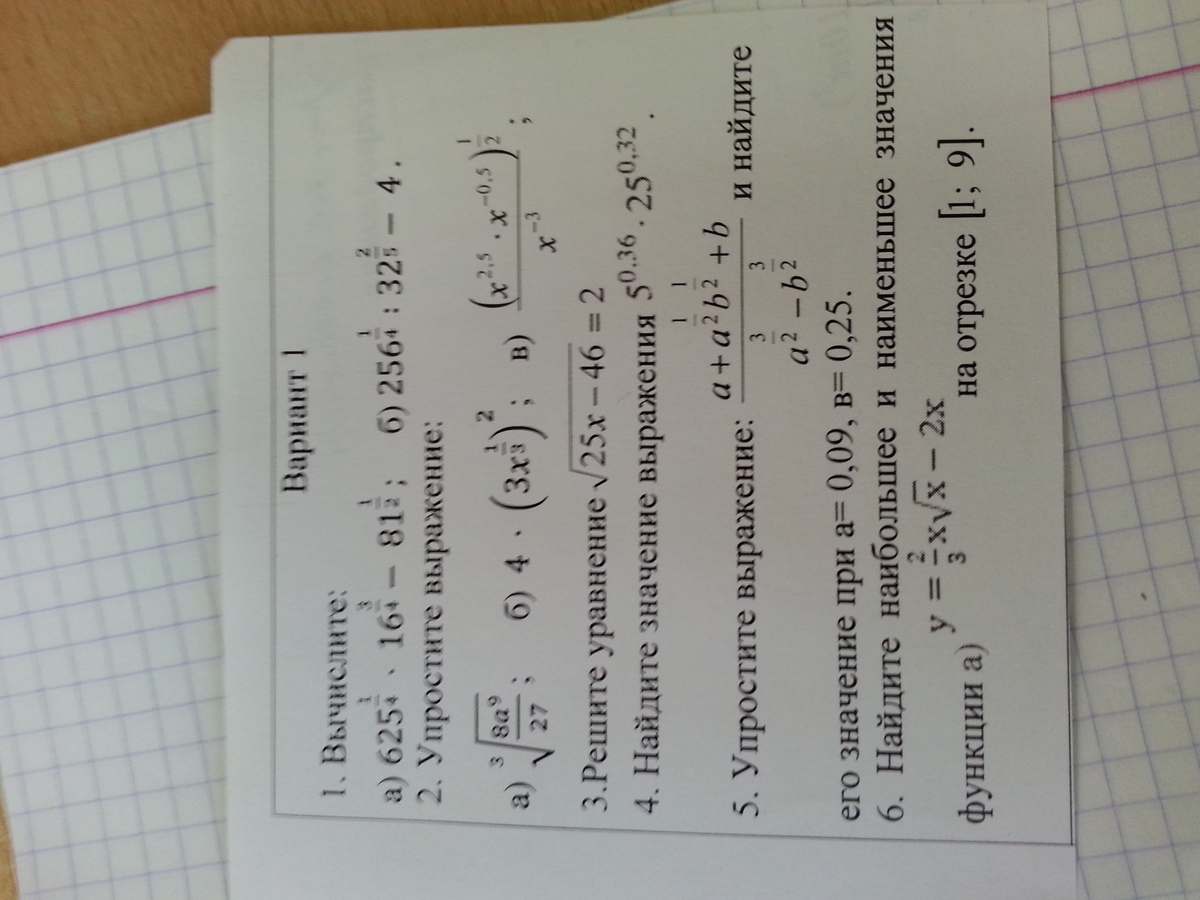 Вариант 1
1. Вычислите:
а) 625^{1/4} · 16^{3/4} − 81^{1/2};   б) 256^{1/4} : 32^{2/5} − 4.
2. Упростите выражение:
а) ∛(8a⁹/27);   б) 4 · (3x^{1/3})²;   в) (x^{2,5} · x^{−0,5})^{1/2} / x^{−3};
3.Решите уравнение √(25x − 46) = 2
4. Найдите значение выражения 5^{0,36} · 25^{0,32}.
5. Упростите выражение: (a + a^{1/2}b^{1/2} + b) / (a^{3/2} − b^{3/2}) и найдите
его значение при а= 0,09, в= 0,25.
6. Найдите наибольшее и наименьшее значения
функции а) y = 2/3 x√x − 2x на отрезке [1; 9].